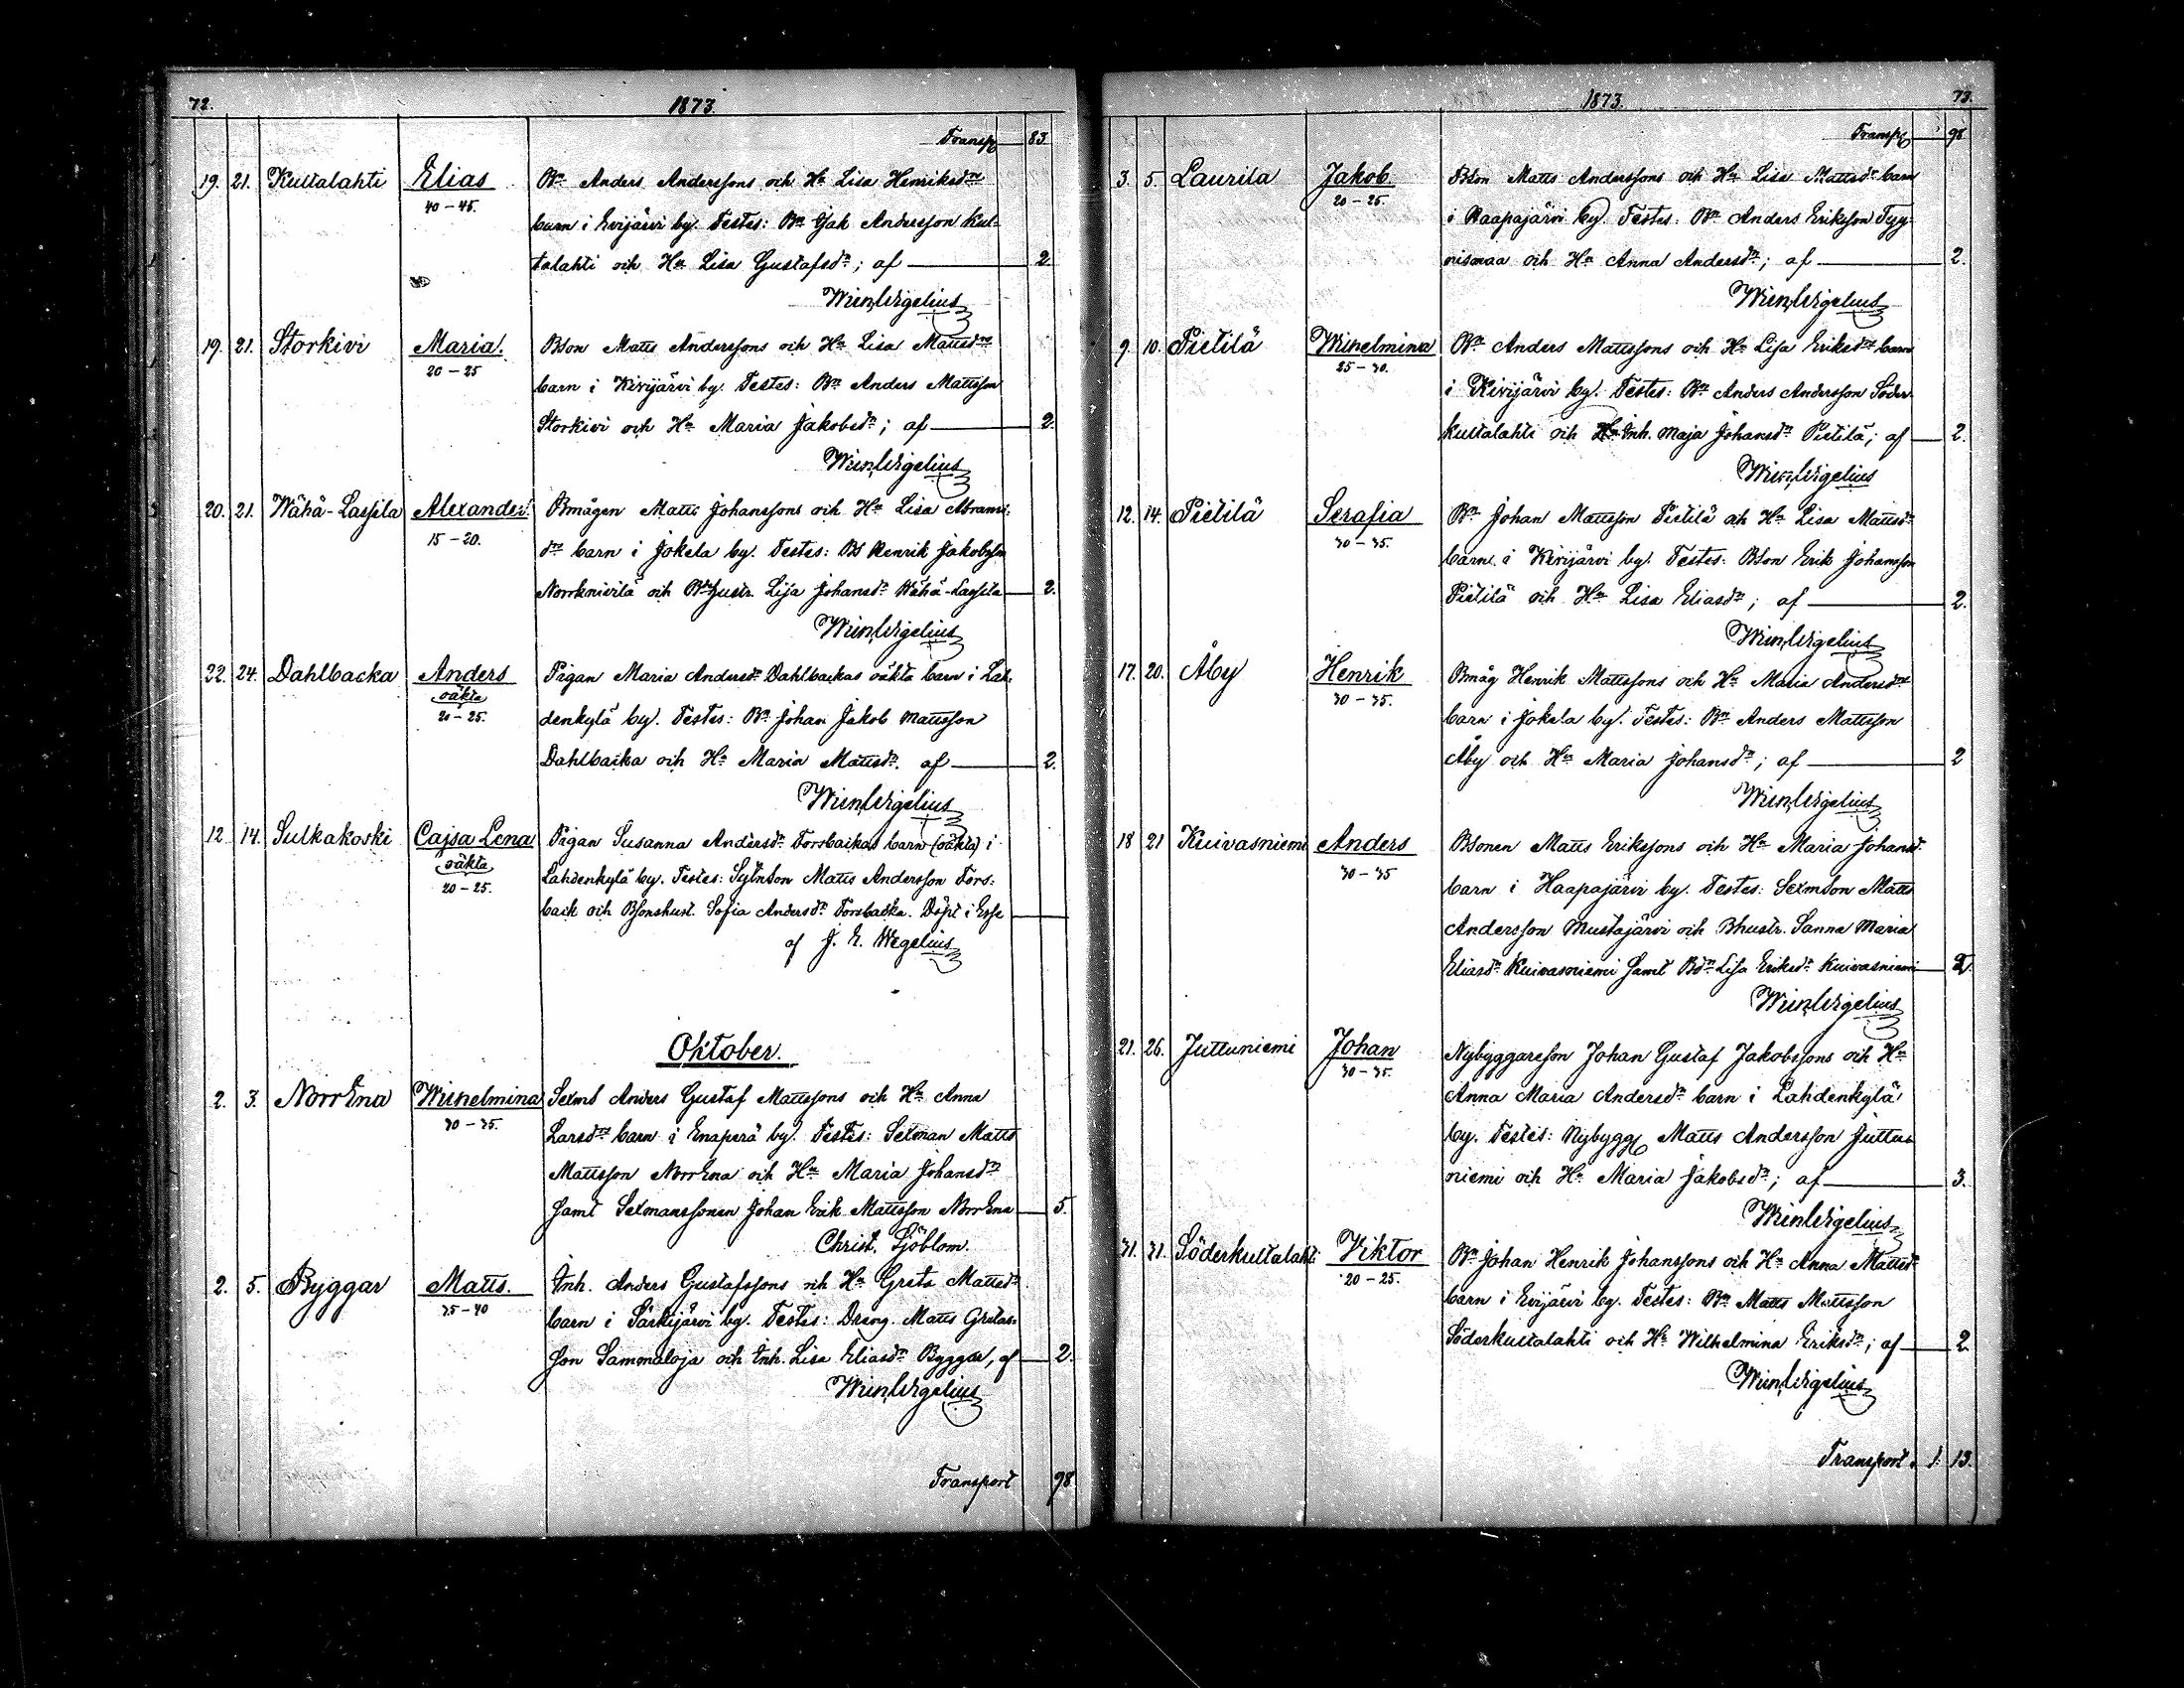 72. 1873.
Transp 83
19. 21. Kultalahti Elias Bn Anders Anderssons och Hu Lisa Henriksdrs
40-45. barn i Evijärvi by. Testes: Bn Jak Andersson Kul-
talahti och Hu Lisa Gustafsdr; af 2
Wilh. Wegelius
19. 21. Storkivi Maria. Bson Matts Anderssons och Hu Lisa Mattsdrs
20-25 barn i Kivijärvi by. Testes: Bn Anders Mattsson
Storkivi och Hu Maria Jakobsdr; af 2.
Wilh. Wegelius
20. 21. Wähä-Lassila Alexander. Bmågen Matts Johanssons och Hu Lisa Abrams-
15-20. drs barn i Jokela by. Testes: Bs Henrik Jakobsson
Norrknivilä och Bhustr. Lisa Johansdr Wähä-Lassila 2.
Wilh. Wegelius
22. 24. Dahlbacka Anders Pigan Maria Andersdr Dahlbackas oäkta barn i Lah-
oäkta
20-25. denkylä by. Testes: Bn Johan Jakob Mattsson
Dahlbacka och Hu Maria Mattsdr. af 2.
Wilh. Wegelius
12 14. Sulkakoski Cajsa Lena Pigan Susanna Andersdr Forsbackas barn (oäkta) i
oäkta
20-25. Lahdenkylä by. Testes: Sytnson Matts Andersson Fors-
back och Bsonshust. Sofia Andersdr Forsbacka. Döpt i Esse
af J. E. Wegelius
Oktober.
2. 3. NorrEna Wilhelmina Sexms Anders Gustaf Mattssons och Hu Anna
30-35. Larsdrs barn i Enaperä by. Testes: Sexman Matts
Mattsson NorrEna och Hu Maria Johansdr
samt Sexmanssonen Johan Erik Mattsson NorrEna 5.
Christ. Sjöblom.
2. 5. Byggar Matts. Inh. Anders Gustafssons och Hu Greta Mattsdr
35-40 barn i Särkijärvi by. Testes: Dreng. Matts Gretas-
son Sammaloja och Inh. Lisa Eliasdr Byggar, af 2.
Wilh. Wegelius
Transport 98
1873. 73.
Transp 98
3. 5. Laurila Jakob. Bson Matts Anderssons och Hu Lisa Mattsdr barn
20-25. i Haapajärvi by. Testes: Bn Anders Eriksson Tyy-
nismaa och Hu Anna Andersdr; af 2.
Wilh. Wegelius
9. 10. Pietilä Wilhelmina Bn Anders Mattssons och Hu Lisa Eriksdrs barn
25-30. i Kivijärvi by. Testes: Bn Anders Andersson Söder-
kultalahti och Inh. Maja Johansdr Pietilä; af 2.
Wilh. Wegelius
12. 14. Pietilä Serafia Bn Johan Mattsson Pietilä och Hu Lisa Mattsdr
30-35. barn i Kivijärvi by. Testes: Bson Erik Johansson
Pietilä och Hu Lisa Eliasdr; af 2.
Wilh. Wegelius
17. 20. Åby Henrik Bmåg Henrik Mattssons och Hu Maria Andersdrs
30-35. barn i Jokela by. Testes: Bn Anders Mattsson
Åby och Hu Maria Johansdr; af 2
Wilh. Wegelius
18 21 Kuivasniemi Anders Bsonen Matts Erikssons och Hu Maria Johansd.
30-35 barn i Haapajärvi by. Testes: Sexmson Matts
Andersson Mustajärvi och Bhustr. Sanna Maria
Eliasdr Kuivasniemi samt Bdr Lisa Eriksdr Kuivasniemi 2.
Wilh. Wegelius
21. 26. Juttuniemi Johan Nybyggaresson Johan Gustaf Jakobssons och Hu
30-35. Anna Maria Andersdr barn i Lahdenkylä
by. Testes: Nybygg Matts Andersson Juttu-
niemi och Hu Maria Jakobsdr; af 3.
Wilh. Wegelius
31. 31. Söderkultalahti Viktor Bn Johan Henrik Johanssons och Hu Anna Mattsdr
20-25. barn i Evijärvi by. Testes: Bn Matts Mattsson
Söderkultalahti och Hu Wilhelmina Eriksdr; af 2.
Wilh. Wegelius
Transport. 1. 13.